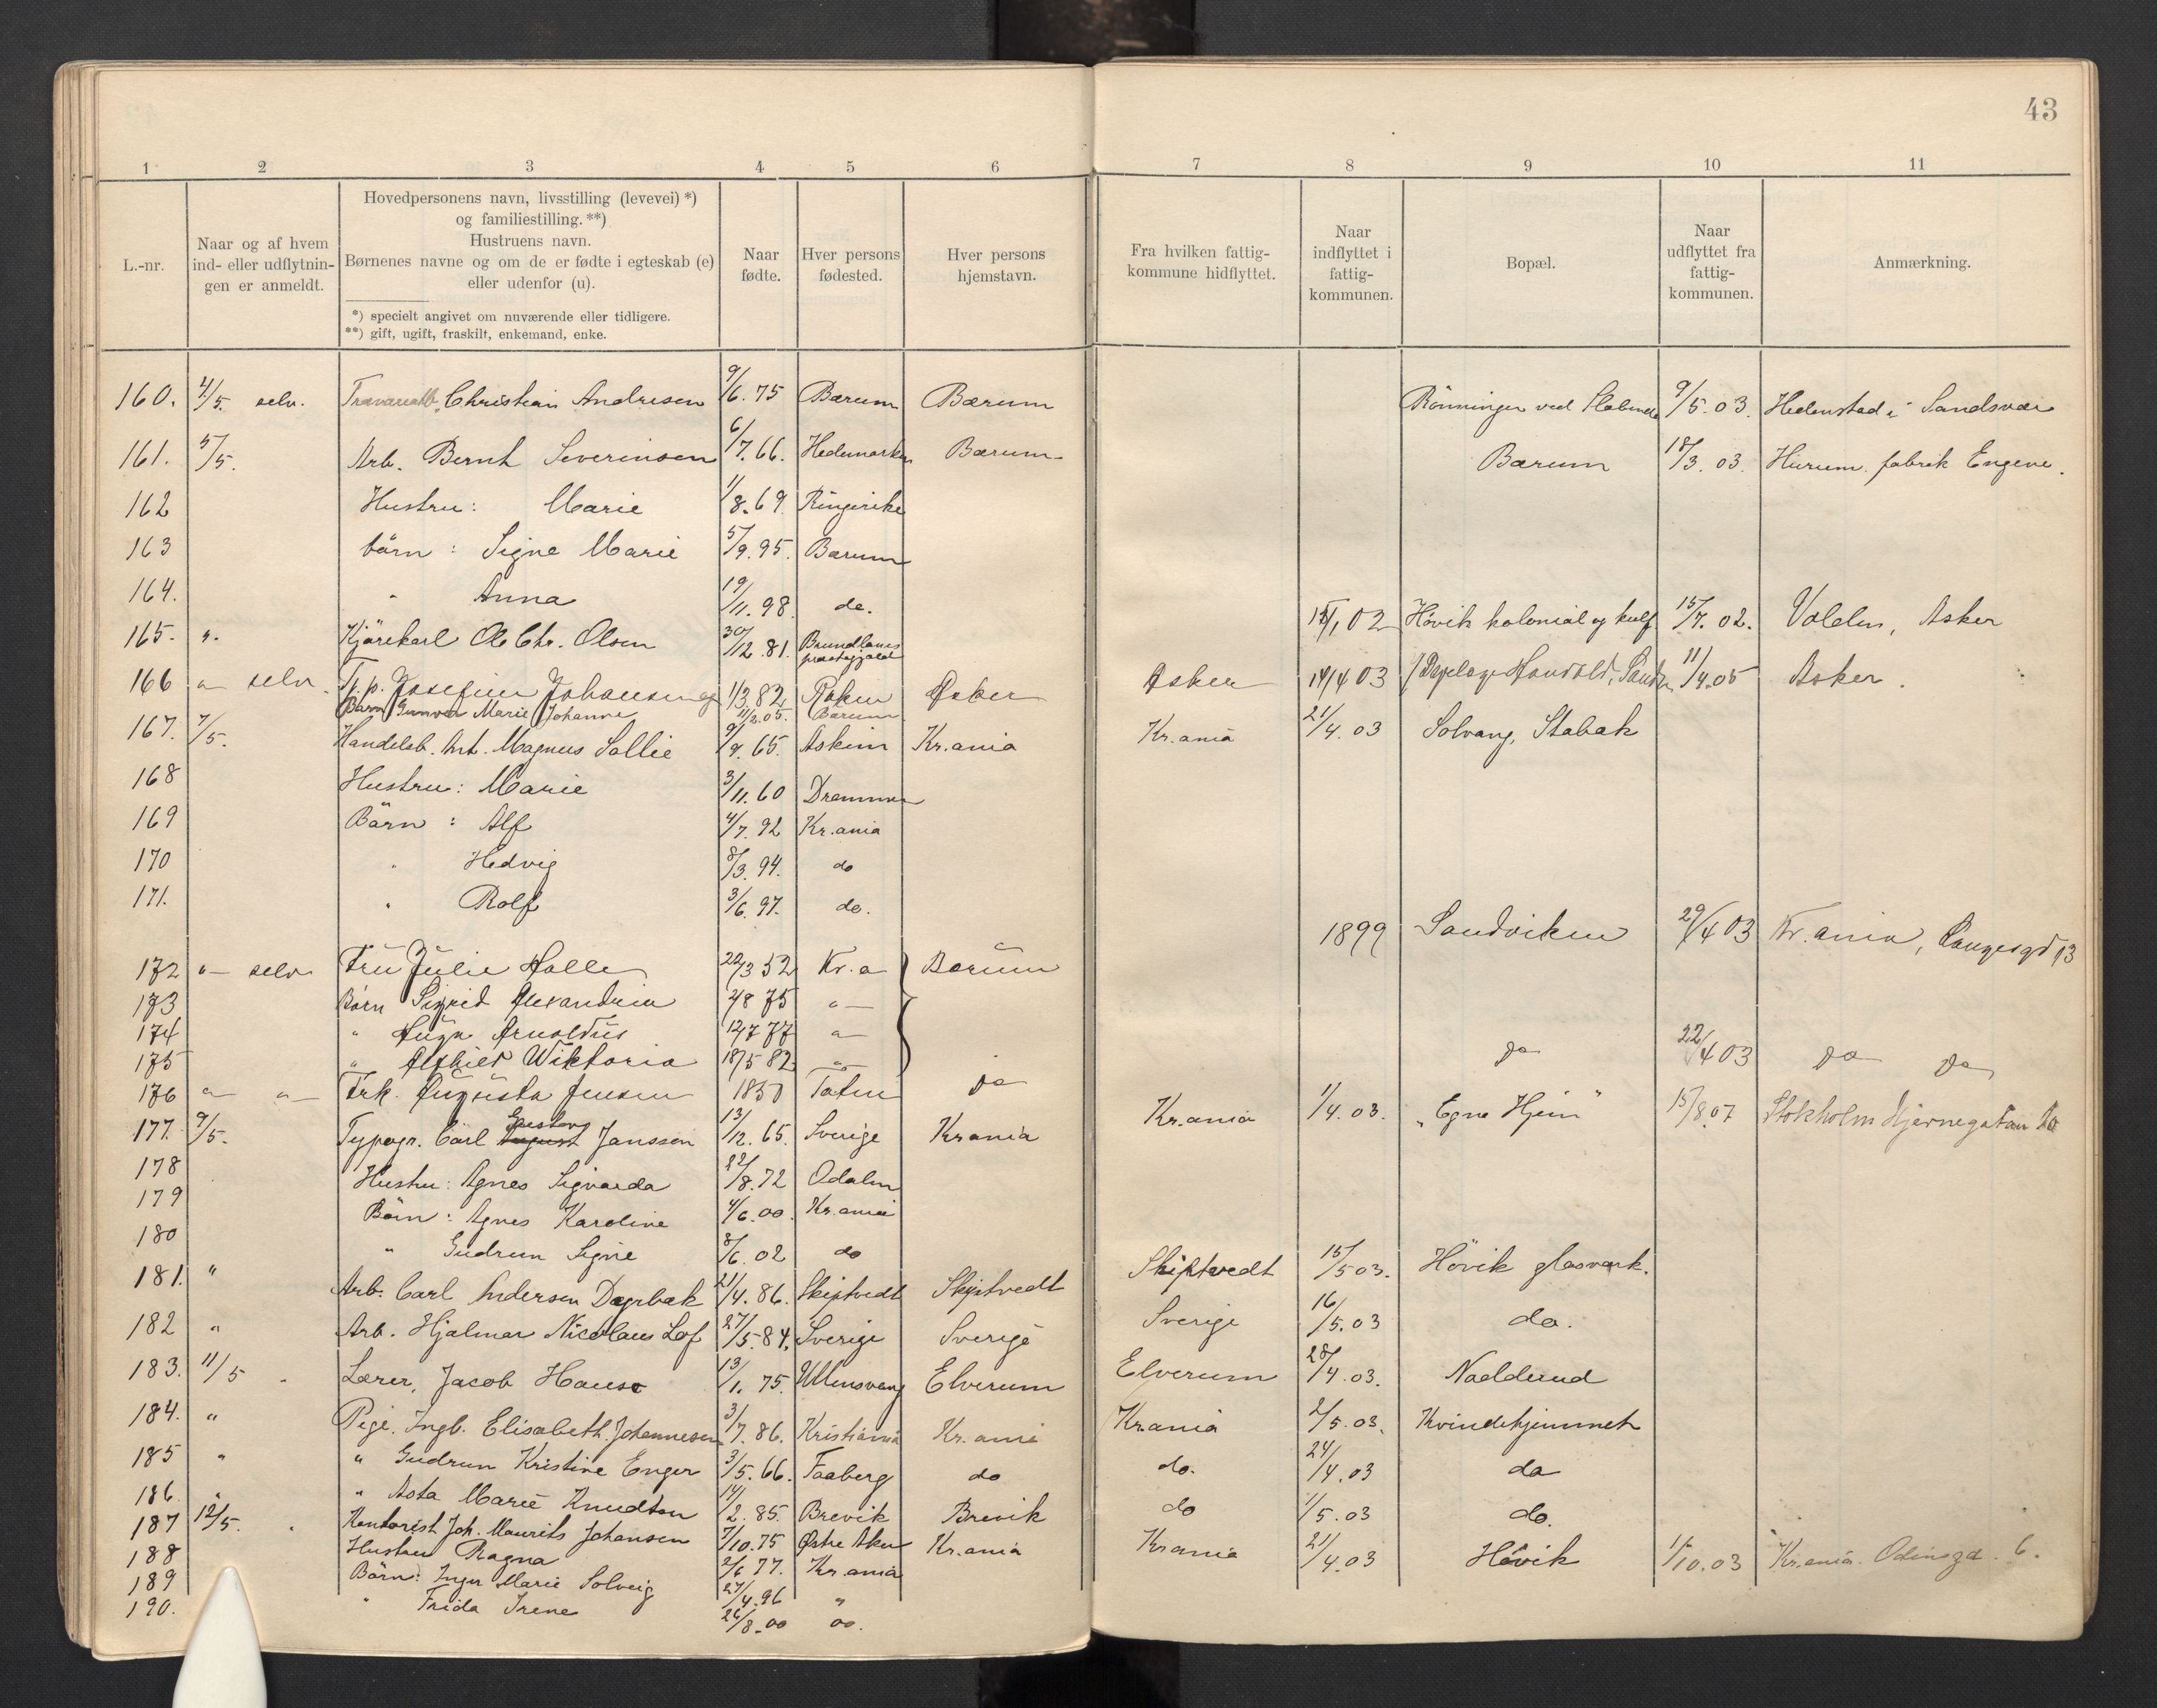 43
1 2 3 4 5 6 7 8 9 10 11
L.-nr.
Naar og af hvem
ind- eller udflytnin-
gen er anmeldt.
Hovedpersonens navn, livsstilling (levevei) *)
og familiestilling. **)
Hustruens navn.
Børnenes navne og om de er fødte i egteskab (e)
eller udenfor (u).
*) specielt angivet om nuværende eller tidligere.
**) gift, ugift, fraskilt, enkemand, enke.
Naar
fødte.
Hver persons
fødested.
Hver persons
hjemstavn.
Fra hvilken fattig-
kommune hidflyttet.
Naar
indflyttet i
fattig-
kommunen.
Bopæl.
Naar
udflyttet fra
fattig-
kommunen.
Anmærkning.
160. 4/5. selv. Christian Andresen 9/6. 75 Bærum Bærum Rönningen ved 9/5. 03. Hedenstad i Sandsvær
161. 5/5. Arb. Bernh Severinsen 6/7. 66. Hedemarken Bærum Bærum 18/3. 03. Hurum fabrik Engene.
162 Hustru: Marie 1/8. 69 Ringerike
163 börn: Signe Marie 5/9. 95. Bærum
164. " Anna 19/11. 98 do.
165. ". Kjörekarl Ole Chr. Olsen 30/12. 81. Brundlanes præstegjæld 15/1 02 Hövik kolonial og kulf. 15/7. 02. Volden, Asker
166 " selv. Tj.p. Josefine Johansen og 1/3 82 Røken Asker Asker 14/4 03 Sandv. 11/4. 05 Asker.
Barn Gunvor Marie Johanne 11/2. 05. Bærum
167. 7/5. Handelsb. Ant. Magnus Sollie 9/9. 65. Askim Kr.ania Kr.ania 21/4. 03 Solvang, Stabæk
168 Hustru: Marie 3/11. 60 Drammen
169 Börn: Alf 4/7. 92 Kr.ania
170 " Hedvig 8/3. 94. do
171. " Rolf 3/6. 97. do.
172 " selv Fru Julie Halle 22/3 52 Kr.a Bærum 1899 Sandviken 29/4 03 Kr.ania, Langesgd 13
173 Börn Sigrid Alexandria 2/8 75 "
174 " Arnoldus 12/7 77 "
175 " Alfhild Wiktoria 18/5 82 "
176 " " Frk. Augusta Jensen 1850 Toten do do 22/4 03 do do
177. 9/5. Typogr. Carl Gustav Jansson 13/12. 65. Sverige Kr.ania Kr.ania 1/4. 03. "Egne Hjem" 15/8. 07 Stokholm
178 Hustru: Agnes Sigvarda 22/8. 72 Odalen
179 Börn: Agnes Karoline 4/6. 00. Kr.ania
180 " Gudrun Signe 8/6. 02 do
181. " Arb. Carl Andersen Dyrbak 21/4. 86. Skiptvedt Skiptvedt Skiptvedt 15/5 03. Hövik glasværk.
182 " Arb. Hjalmar Nicolaus Lof 27/5. 84. Sverige Sverige Sverige 16/5. 03 do.
183. 11/5 " Lærer, Jacob Hauso 13/1. 75. Ullensvang Elverum Elverum 28/4. 03. Nadderud
184. " Pige. Ingb. Elisabeth Johannesen 3/7. 86. Kristiania Kr.ania Kr.ania 2/5. 03. Kvindehjemmet
185 " " Gudrun Kristine Enger 3/5. 66. Faaberg do do. 24/4. 03 do
186 " " Asta Marie Knudtsen 14/2. 85. Brevik Brevik do 1/5. 03 do.
187 12/5. " Kontorist Joh. Maurits Johansen 7/10. 75 Østre Aker Kr.ania Kr.ania 21/4. 03 Hövik 1/10. 03 Kr.ania. Odinsgd. 6.
188 Hustru Ragna 2/6 77. Kr.ania
189 Börn: Inger Marie Solveig 27/4. 96 "
190. " Frida Irene 26/8. 00 do.